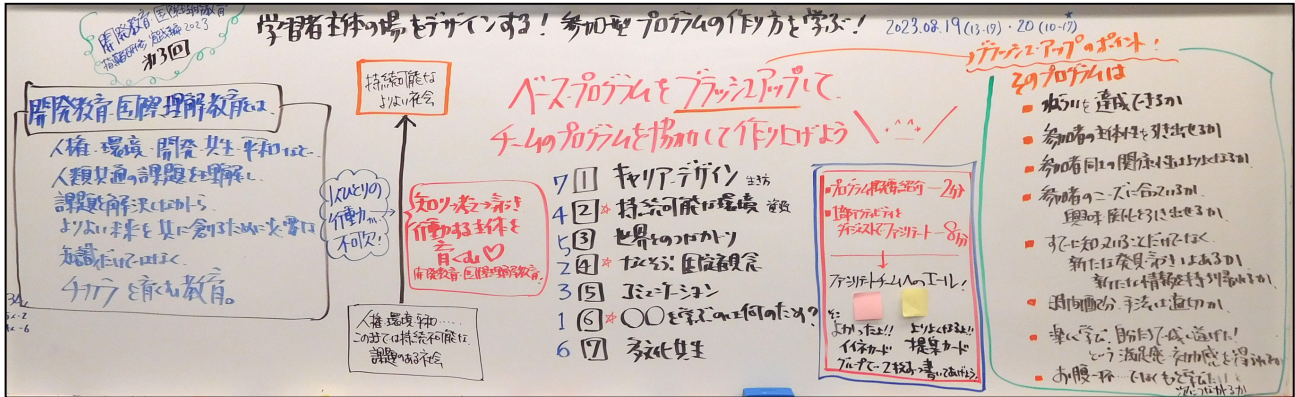 開発教育・国際理解教育
指導者研修 実践編 2023
第3回
学習者主体の場をデザインする！参加型プログラムの作り方を学ぶ！
2023.08.19(13-19)・20(10-17)
開発教育・国際理解教育とは
人権・環境・開発・共生・平和など
人類共通の課題を理解し、
課題を解決しながら、
よりよい未来を共に創るために必要な
知識だけではなく、
チカラを育くむ教育。
1人ひとりの
行動が
不可欠！
持続可能な
よりよい社会
知り・考え・気づき
行動する主体を
育くむ♡
開発教育・国際理解教育！
人権・環境・平和……
このままでは持続不可能な
課題のある社会
ベースプログラムをブラッシュアップして、
チームのプログラムを協力して作り上げよう
7 1 キャリア・デザイン 生き方
4 2 ☆ 持続可能な環境 資数
5 3 世界とのつながり
2 4 ☆ なくそう！固定観念
3 5 コミュニケーション
1 6 ☆ 〇〇を学ぶのは何のため？
6 7 多文化共生
・プログラム概要紹介 ― 2分
・1部アクティビティを
ダイジェストでファシリテート ― 8分
ファシリテートチームへのエール！
よかったよ!! よりよくなるよ!!
イイネカード 提案カード
グループで2枚ずつ書いてあげよう。
ブラッシュ・アップのポイント！
そのプログラムは
ねらいを達成できるか
参加者の主体性を引き出せるか
参加者同士の関係性はよりよくなるか
参加者のニーズに合っているか
興味・関心を引き出せるか
すでに知っていることだけでなく、
新たな発見・気づきはあるか
新たな情報を持ち帰れるか
時間配分・手法は適切か
楽しく学び、自分たちで成し遂げた！
という満足感・効力感を得られるか
お腹一杯…ではなくもっと学びたい！
次につながるか